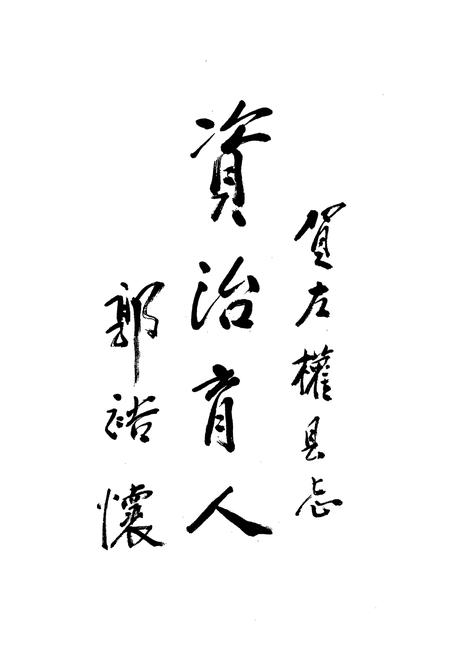 賀左權县志
資治育人
郭裕懷